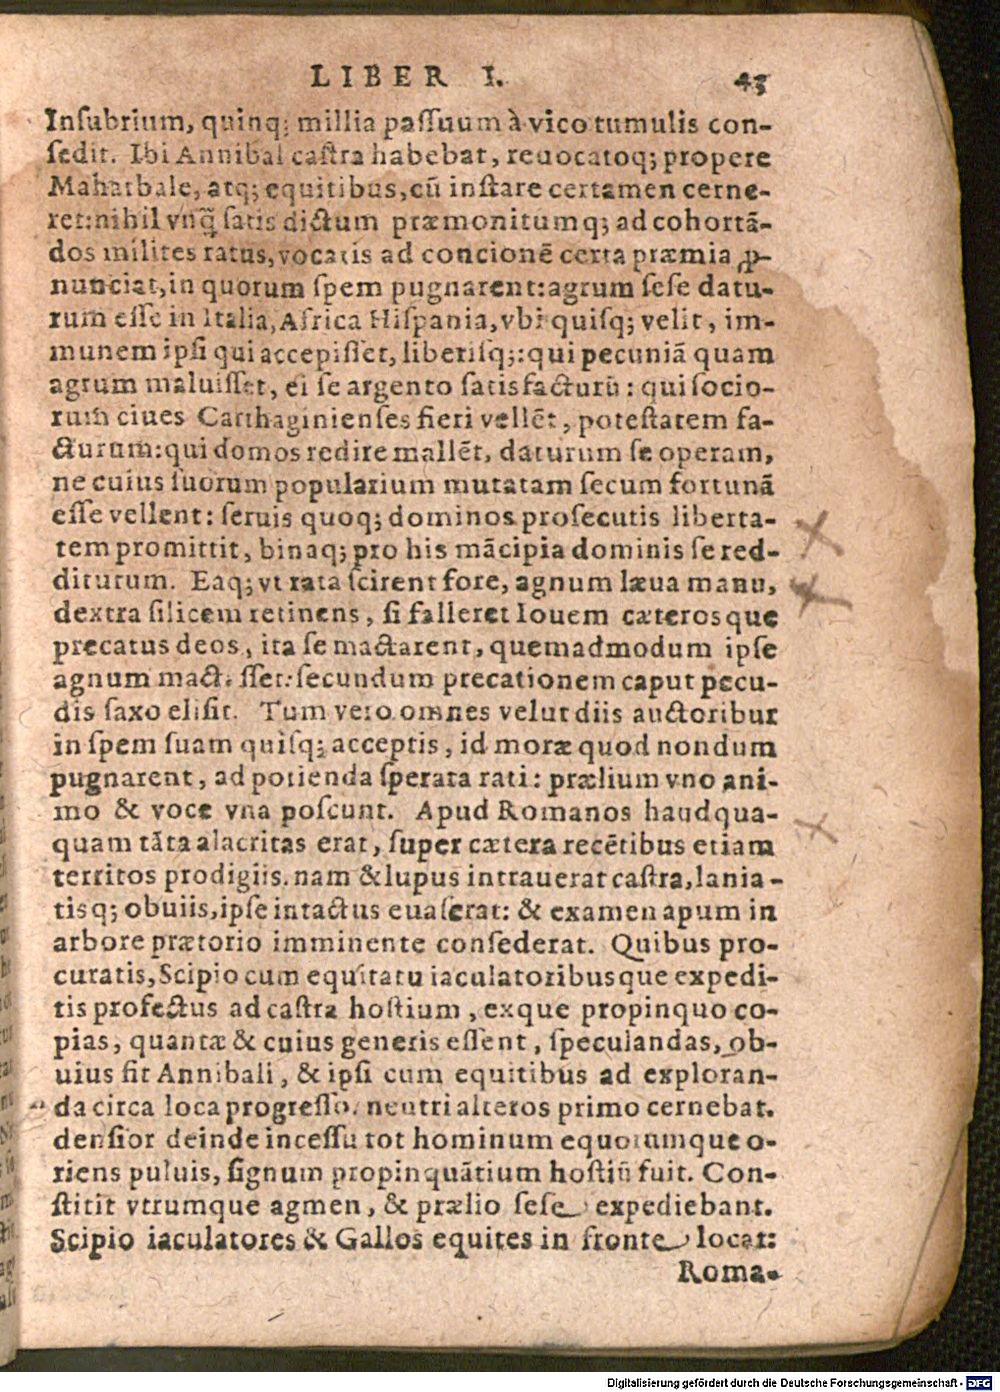 LIBER I. 43
Inſubrium, quinq; millia paſſuum à vico tumulis con-
ſedit. Ibi Annibal caſtra habebat, reuocatoq; propere
Maharbale, atq; equitibus, cũ inſtare certamen cerne-
ret: nihil vnq̃ ſatis dictum præmonitumq; ad cohortã-
dos milites ratus, vocatis ad concionẽ certa præmia ꝓ-
nunciat, in quorum ſpem pugnarent: agrum ſeſe datu-
rum eſſe in Italia, Africa Hiſpania, vbi quiſq; velit, im-
munem ipſi qui accepiſſet, liberiſq;: qui pecuniã quam
agrum maluiſſet, ei ſe argento ſatisfacturũ: qui ſocio-
rum ciues Carthaginienſes fieri vellẽt, poteſtatem fa-
cturum: qui domos redire mallẽt, daturum ſe operam,
ne cuius ſuorum popularium mutatam ſecum fortunã
eſſe vellent: ſeruis quoq; dominos proſecutis liberta-
tem promittit, binaq; pro his mãcipia dominis ſe red-
diturum. Eaq; vt rata ſcirent fore, agnum læua manu,
dextra ſilicem retinens, ſi falleret Iouem cæterosque
precatus deos, ita ſe mactarent, quemadmodum ipſe
agnum mact. ſſet: ſecundum precationem caput pecu-
dis ſaxo eliſit. Tum vero omnes velut diis auctoribur
in ſpem ſuam quiſq; acceptis, id moræ quod nondum
pugnarent, ad potienda ſperata rati: prælium vno ani-
mo & voce vna poſcunt. Apud Romanos haudqua-
quam tãta alacritas erat, ſuper cætera recẽtibus etiam
territos prodigiis. nam & lupus intrauerat caſtra, lania-
tisq; obuiis, ipſe intactus euaſerat: & examen apum in
arbore prætorio imminente conſederat. Quibus pro-
curatis, Scipio cum equitatu iaculatoribusque expedi-
tis profectus ad caſtra hoſtium, exque propinquo co-
pias, quantæ & cuius generis eſſent, ſpeculandas, ob-
uius fit Annibali, & ipſi cum equitibus ad exploran-
da circa loca progreſſo. neutri alteros primo cernebat.
denſior deinde inceſſu tot hominum equorumque o-
riens puluis, ſignum propinquãtium hoſtiũ fuit. Con-
ſtitit vtrumque agmen, & prælio ſeſe expediebant.
Scipio iaculatores & Gallos equites in fronte locat:
Roma-
Digitalisierung gefördert durch die Deutsche Forschungsgemeinschaft - DFG